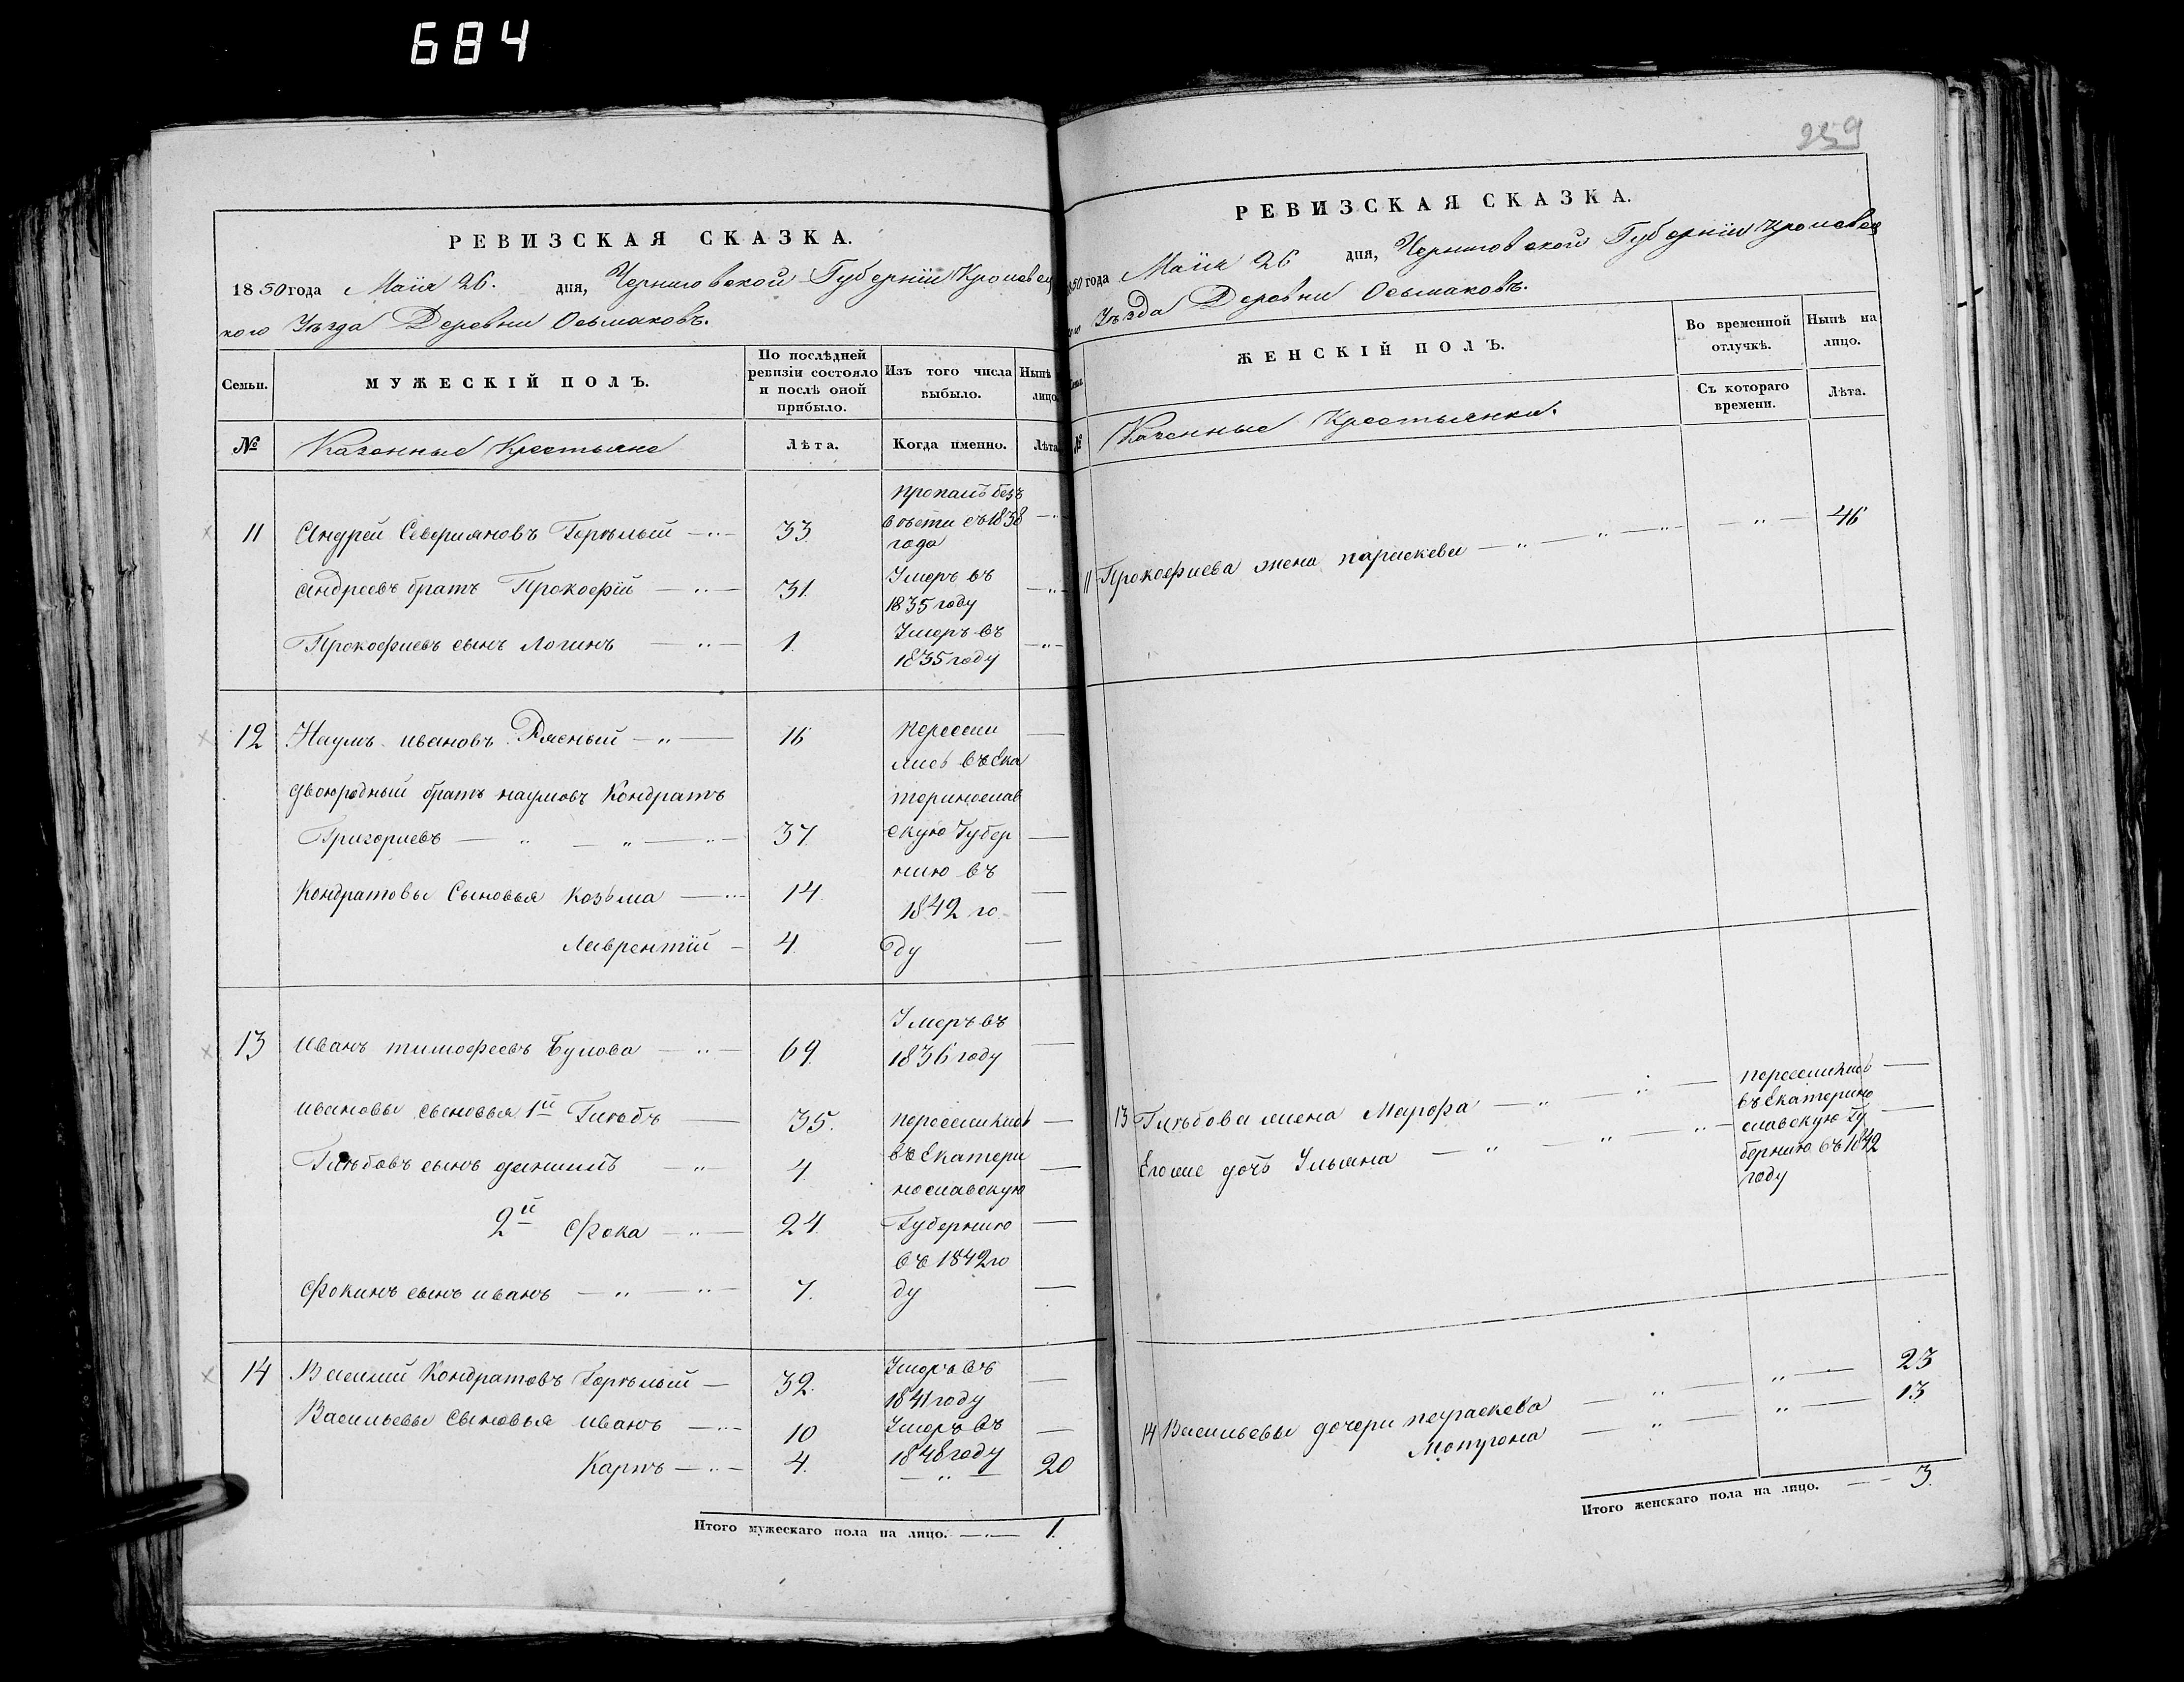 684
РЕВИЗСКАЯ СКАЗКА.
1850 года Маія 26. дня, Черниговской Губерніи Кролевец
кого Уѣзда Деревни Осьмаковъ.
Семьи.
МУЖЕСКІЙ ПОЛЪ.
По послѣдней
ревизіи состояло
и послѣ оной
прибыло.
Изъ того числа
выбыло.
Нынѣ
лицо
№
Казенные Крестьяне
Лѣта.
Когда именно.
Лѣта
пропалъ безъ
11 Андрей Северияновъ Горѣлый 33. вѣсти съ 1838
года
Андреевъ братъ Прокофій 31. Умеръ въ
1835 году
Прокофиевъ сынъ Логинъ 1. Умеръ въ
1835 году
12 Наумъ ивановъ Рясный 16 пересели
лись въ Ека
двоюродный братъ наумовъ Кондратъ теринослав
Григориевъ 37. скую Губер
нию въ
Кондратовы Сыновья Козьма 14. 1842 го
Лаврентій 4. ду
13 иванъ тимофеевъ Булова 69. Умеръ въ
1836 году
ивановы сыновья 1й Глѣбъ 35. переселились
Глѣбовъ сынъ данилъ 4. въ Екатери
нославскую
2й Фока 24. Губернию
въ 1842 го
Фокинъ сынъ иванъ 7. ду
14 Василий Кондратовъ Горѣлый 32. Умеръ въ
1841 году
Васильевы Сыновья иванъ 10 Умеръ въ
1848 году
Карпъ 4. 20
Итого мужескаго пола на лицо. 1.
259
РЕВИЗСКАЯ СКАЗКА.
1850 года Маія 26 дня, Черниговской Губерніи Кролевец
Уѣзда Деревни Осьмаковъ.
ЖЕНСКІЙ ПОЛЪ.
Во временной
отлучкѣ.
Нынѣ на
лицо.
Съ котораго
времени.
Лѣта.
№
Казенные Крестьянки.
11 Прокофиева жена параскева 46
13 Глѣбова жена Марфа переселились
въ Екатерино
Его же дочь Ульяна славскую Гу
бернию въ 1842
году
14 Васильевы дочери параскева 23
Мотрона 13
Итого женскаго пола на лицо. 3.